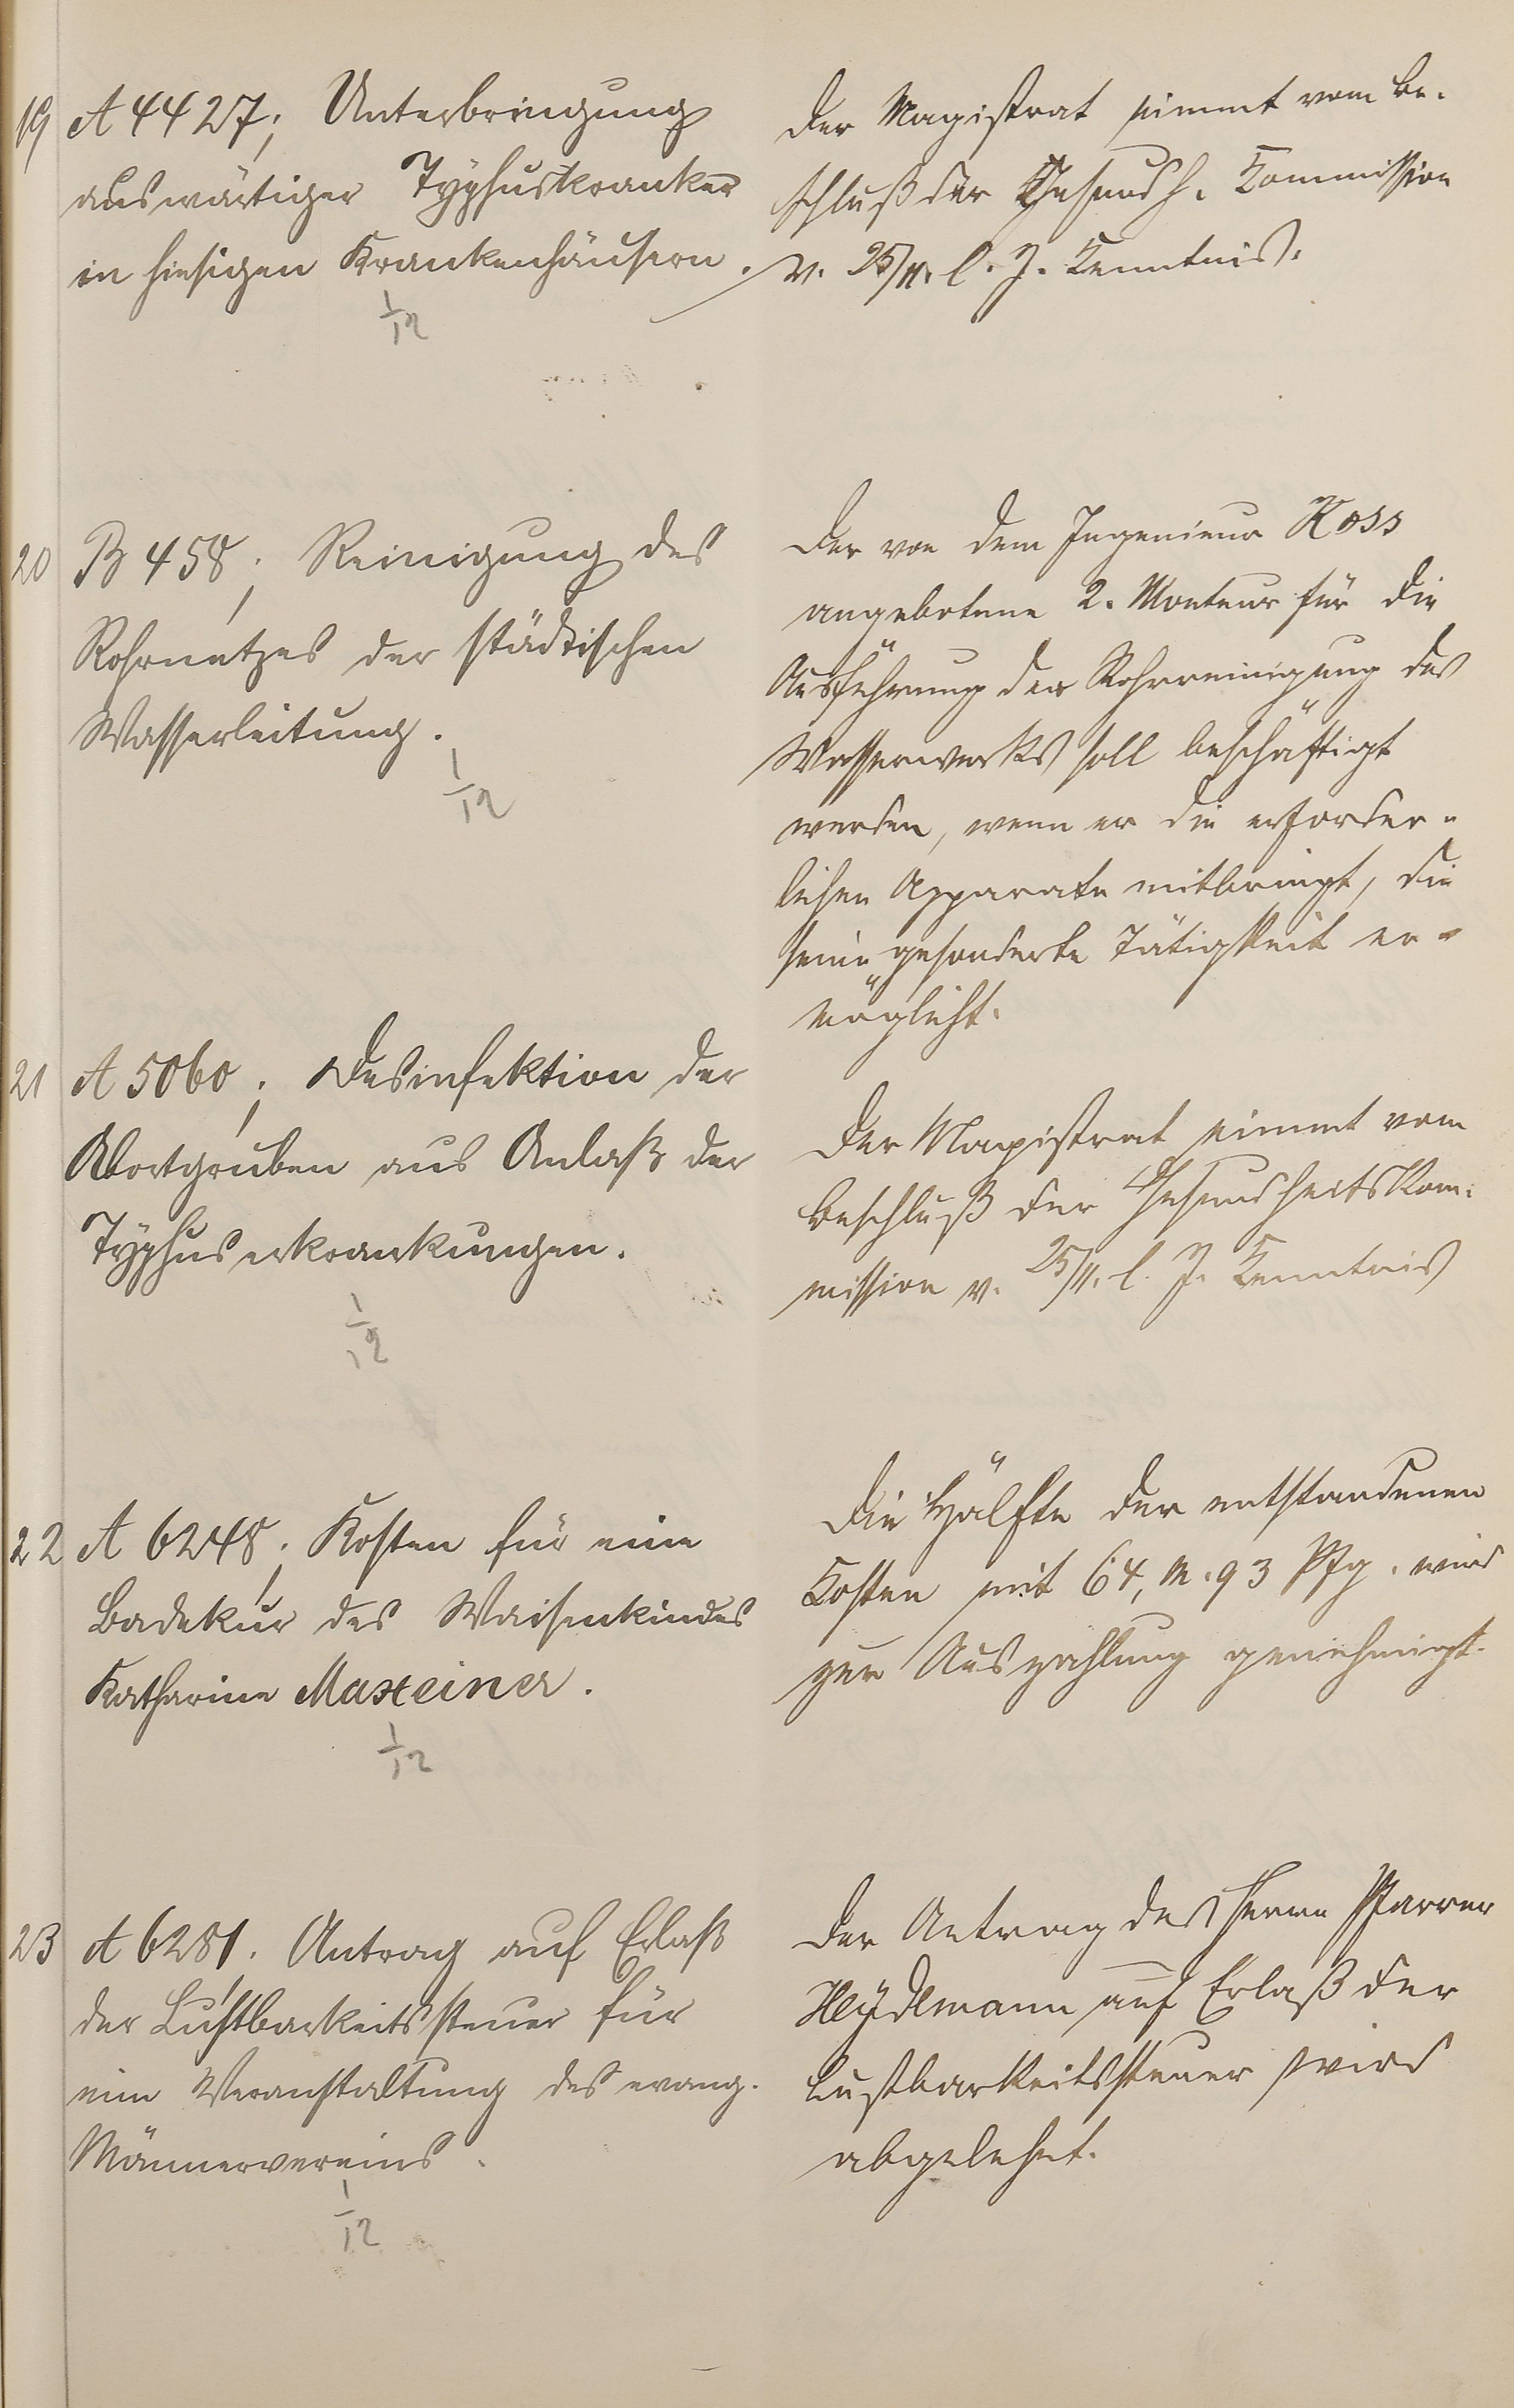 19 A 4427; Unterbringung
auswärtiger Typhuskranker
in hiesigen Krankenhäusern.
1/12
Der Magistrat nimmt vom Be-
schluß der Gesundh. Kommission
v. 25/11. l. J. Kenntnis.
20 B 458; Reinigung des
Rohrnetzes der städtischen
Wasserleitung.
1/12
Der von dem Ingenieur Koss
angebotene 2. Monteur für die
Ausführung der Rohrreinigung des
Wasserwerks soll beschäftigt
werden, wenn er die erforder-
lichen Apparate mitbringt, die
seine gesonderte Tätigkeit er-
möglicht.
21 A 5060; Desinfektion der
Abortgruben aus Anlaß der
Typhuserkrankungen.
1/12
Der Magistrat nimmt vom
Beschluß der Gesundheitskom-
mission v. 25/11. l. J. Kenntnis
22 A 6248; Kosten für eine
Badekur des Waisenkindes
Katharine Maxeiner.
1/12
Die Hälfte der entstandenen
Kosten mit 64, M. 93 Pfg. wird
zur Auszahlung genehmigt.
23 A 6281. Antrag auf Erlaß
der Lustbarkeitssteuer für
eine Veranstaltung des evang.
Männervereins.
1/12
Der Antrag des Herrn Pfarrer
Heydemann auf Erlaß der
Lustbarkeitssteuer wird
abgelehnt.